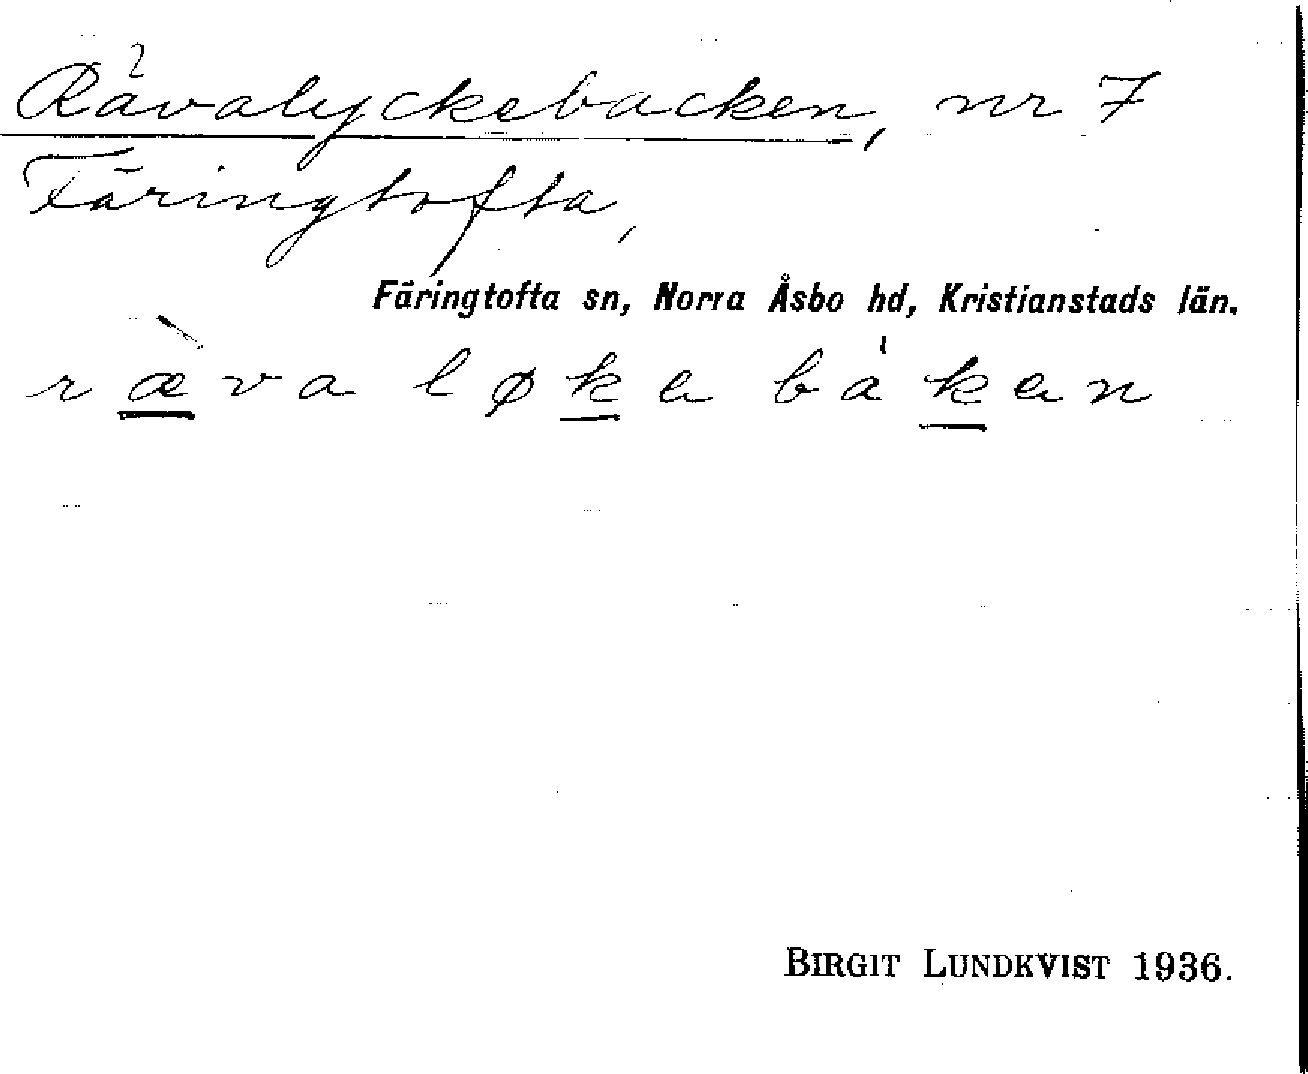 Rävalyckebacken, nr 7
Färingtofta,
Färingtofta sn, Norra Åsbo hd, Kristianstads län.
ræ̀va løke båken
BIRGIT LUNDKVIST 1936.